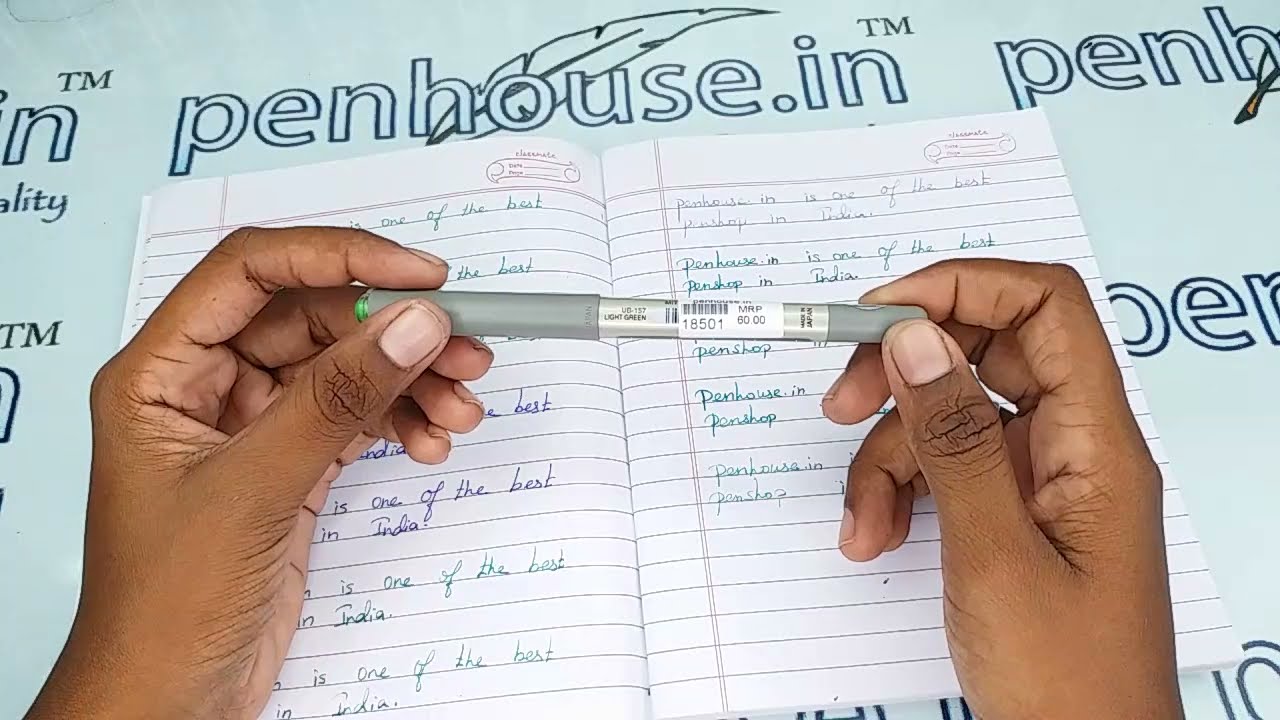 in TM
penhouse.in TM
penh
ality
TM
classmate
Date
Page
is one of the best
the best
e best
India
is one of the best
in India.
is one of the best
in India.
is one of the best
in India.
classmate
Date
Page
penhouse.in is one of the best
penshop in India.
Penhouse.in is one of the best
Penshop in India.
penshop in
Penhouse.in
penshop
penhouse.in
penshop
UB-157
LIGHT GREEN
JAPAN
penhouse.in
18501
MRP
60.00
MADE IN
JAPAN
penhouse
penhouse.in